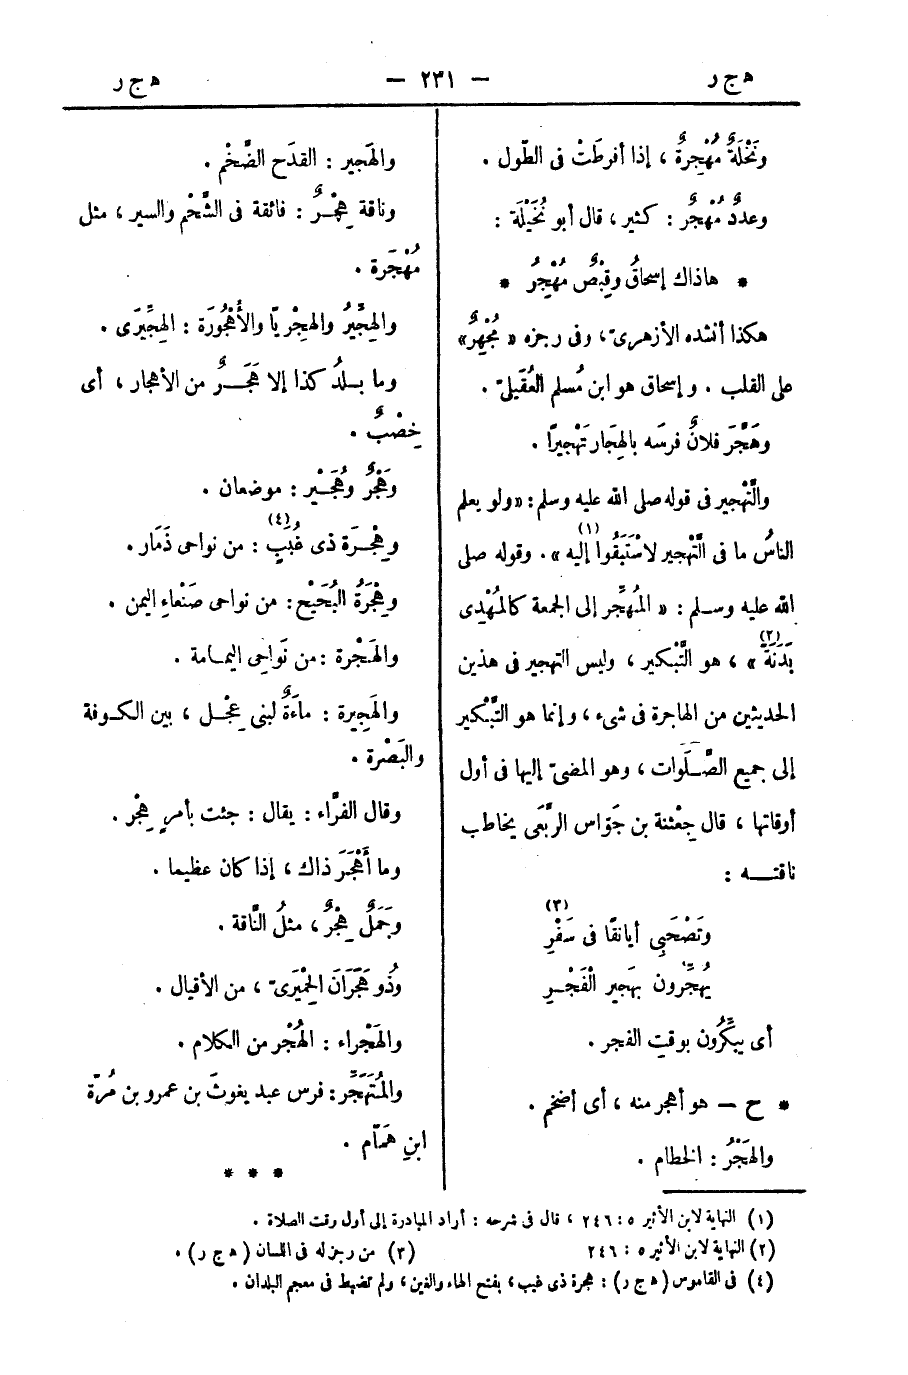 ه ج ر
— ٢٣١ —
ه ج ر
ونَخْلَةٌ مُهْجِرةٌ ، إذا أفرطَتْ فى الطّول .
وعددٌ مُهْجِرٌ : كثير ، قال أبو نُخَيْلَة :
* هاذاك إسحاقُ وقِبْصٌ مُهْجِرُ *
هكذا أنشده الأزهرىّ ، وفى رجزه « مُجْهِرٌ »
على القلب . وإسحاق هو ابن مُسلم العُقَيلىّ .
وهَجَّرَ فلانٌ فرسَه بالهِجَار تَهْجيرًا .
والتَّهْجير فى قوله صلى الله عليه وسلم : «ولو يعلم
الناسُ ما فى التَّهْجير لاسْتَبَقُوا إليه (١)» . وقوله صلى
الله عليه وسلم : « المُهَجِّر إلى الجمعة كالمُهْدِى
بَدَنَةً (٢)» ، هو التَّبْكير ، وليس التهجير فى هذين
الحديثين من الهاجرة فى شىء ، وإنما هو التَّبْكير
إلى جميع الصَّلَوات ، وهو المضىّ إليها فى أول
أوقاتها ، قال جِعْثنة بن جَوّاس الرَّبَعى يخاطب
ناقته :
وتَصْحَبِى أيانقًا فى سَفْرِ (٣)
يُهَجِّرون بهَجير الْفَجْرِ
أى يبكِّرُون بوقت الفجر .
* ح — هو أهجر منه ، أى أضخم .
والهَجْرُ : الخطام .
والهَجير : القدَح الضَّخْم .
وناقة هِجْرٌ : فائقة فى الشَّحْم والسير ، مثل
مُهْجَرة .
والهِجِّيرُ والهِجْريّا والأُهْجُورَة : الهِجِّيرَى .
وما بلدُ كذا إلا هَجَرٌ من الأهجار ، أى
خِصْبٌ .
وهَجْرٌ وهُجَيْر : موضعان .
وهِجْرَة ذى غُبَبٍ (٤) : من نواحى ذَمَار .
وهِجْرَةُ البُحَيْح : من نواحى صَنْعاءِ اليمن .
والهَجْرة : من نَواحِى اليمامة .
والهَجِيرة : ماءَةٌ لبنى عِجْل ، بين الكوفة
والبَصْرة .
وقال الفرَّاء : يقال : جئت بأمرٍ هِجْر .
وما أَهْجَرَ ذاك ، إذا كان عظيما .
وجَمَلٌ هِجْرٌ ، مثلُ النَّاقة .
وذُو هَجَرَانَ الحِمْيَرىّ ، من الأقيال .
والهَجْراء : الهُجْر من الكلام .
والمُتَهَجِّر : فرس عبد يغوثَ بن عمرو بن مُرَّة
ابنِ همّام .
* * *
(١) النهاية لابن الأثير ٥ : ٢٤٦ ، قال فى شرحه : أراد المبادرة إلى أول وقت الصلاة .
(٢) النهاية لابن الأثير ٥ : ٢٤٦ (٣) من رجز له فى اللسان ( ه ج ر ) .
(٤) فى القاموس ( ه ج ر ) : هجرة ذى غبب ، بفتح الهاء والغين ، ولم تضبط فى معجم البلدان .